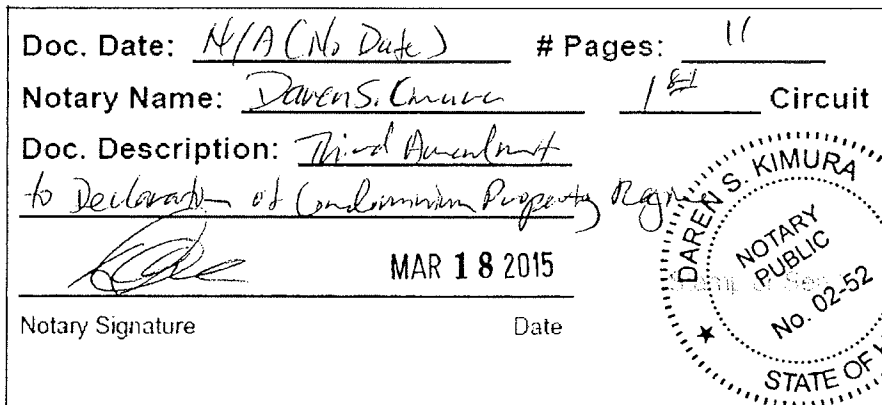 Doc. Date: N/A (No Date) # Pages: 11
Notary Name: Daren S. Kimura 1st Circuit
Doc. Description: Third Amendment
to Declaration of Condominium Property Regime
MAR 18 2015
Notary Signature Date
DAREN S. KIMURA
NOTARY
PUBLIC
No. 02-52
STATE OF
Stamp or Seal